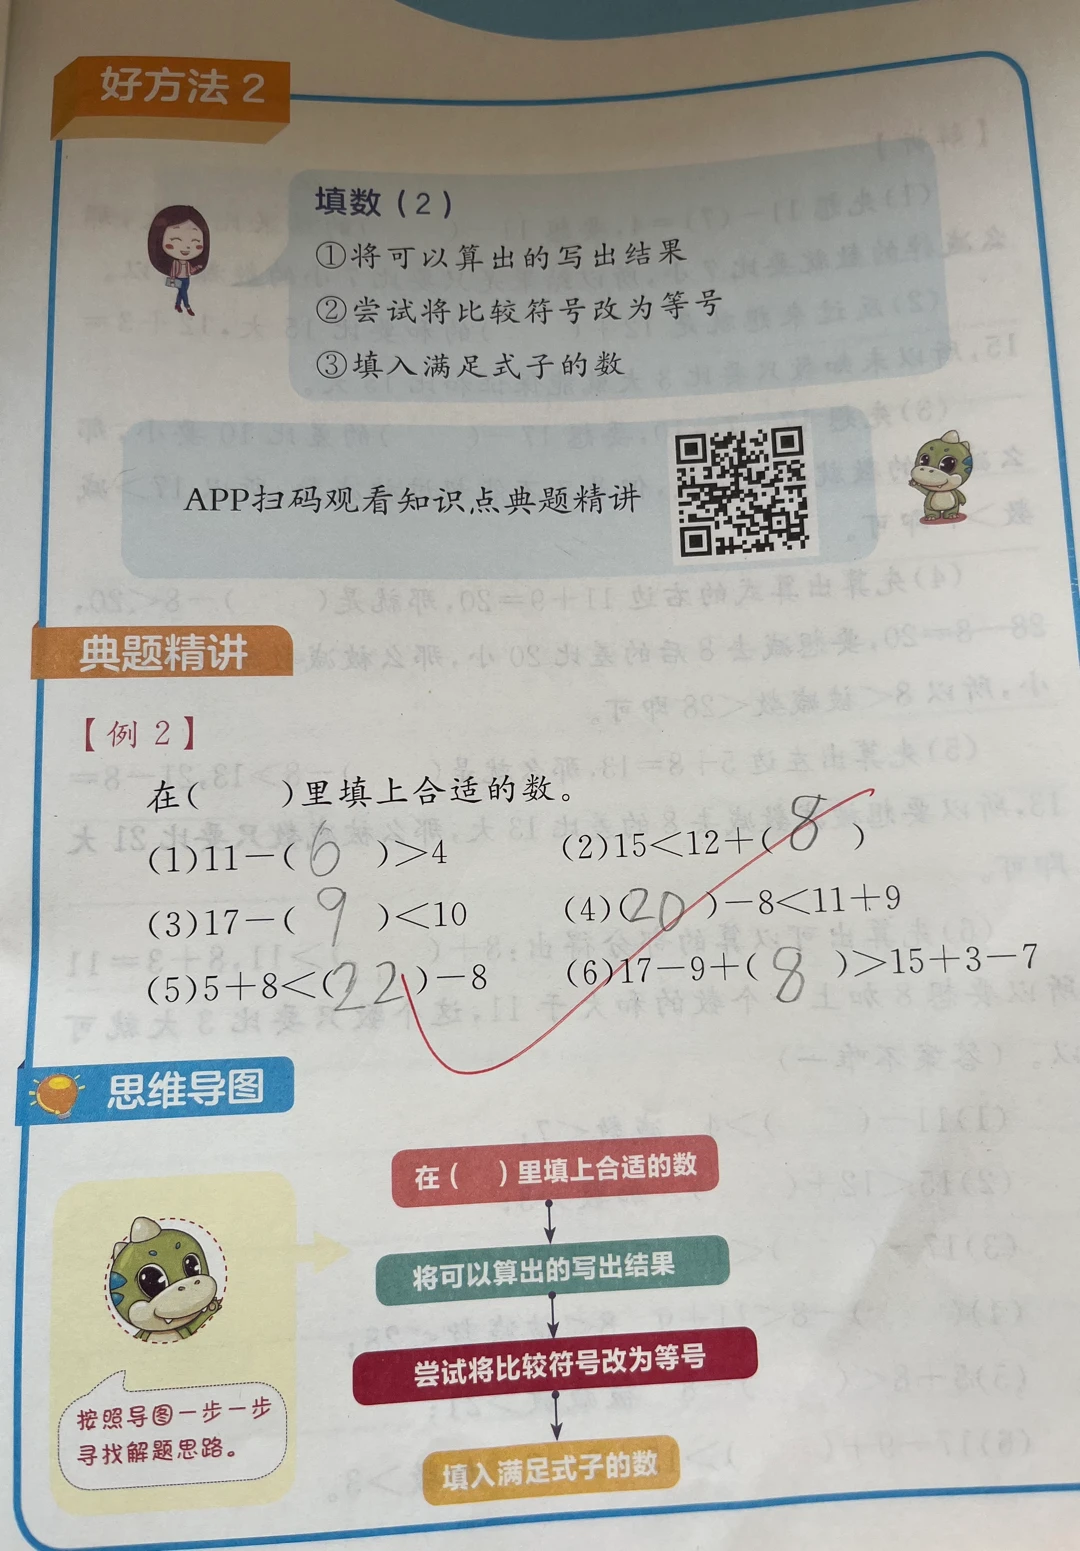 好方法 2
填数（2）
①将可以算出的写出结果
②尝试将比较符号改为等号
③填入满足式子的数
APP扫码观看知识点典题精讲
典题精讲
【例 2】
在(　　)里填上合适的数。
(1)11－( 6 )＞4　　(2)15＜12＋( 8 )
(3)17－( 9 )＜10　　(4)( 20 )－8＜11＋9
(5)5＋8＜( 22 )－8　　(6)17－9＋( 8 )＞15＋3－7
思维导图
在（　）里填上合适的数
将可以算出的写出结果
尝试将比较符号改为等号
填入满足式子的数
按照导图一步一步
寻找解题思路。